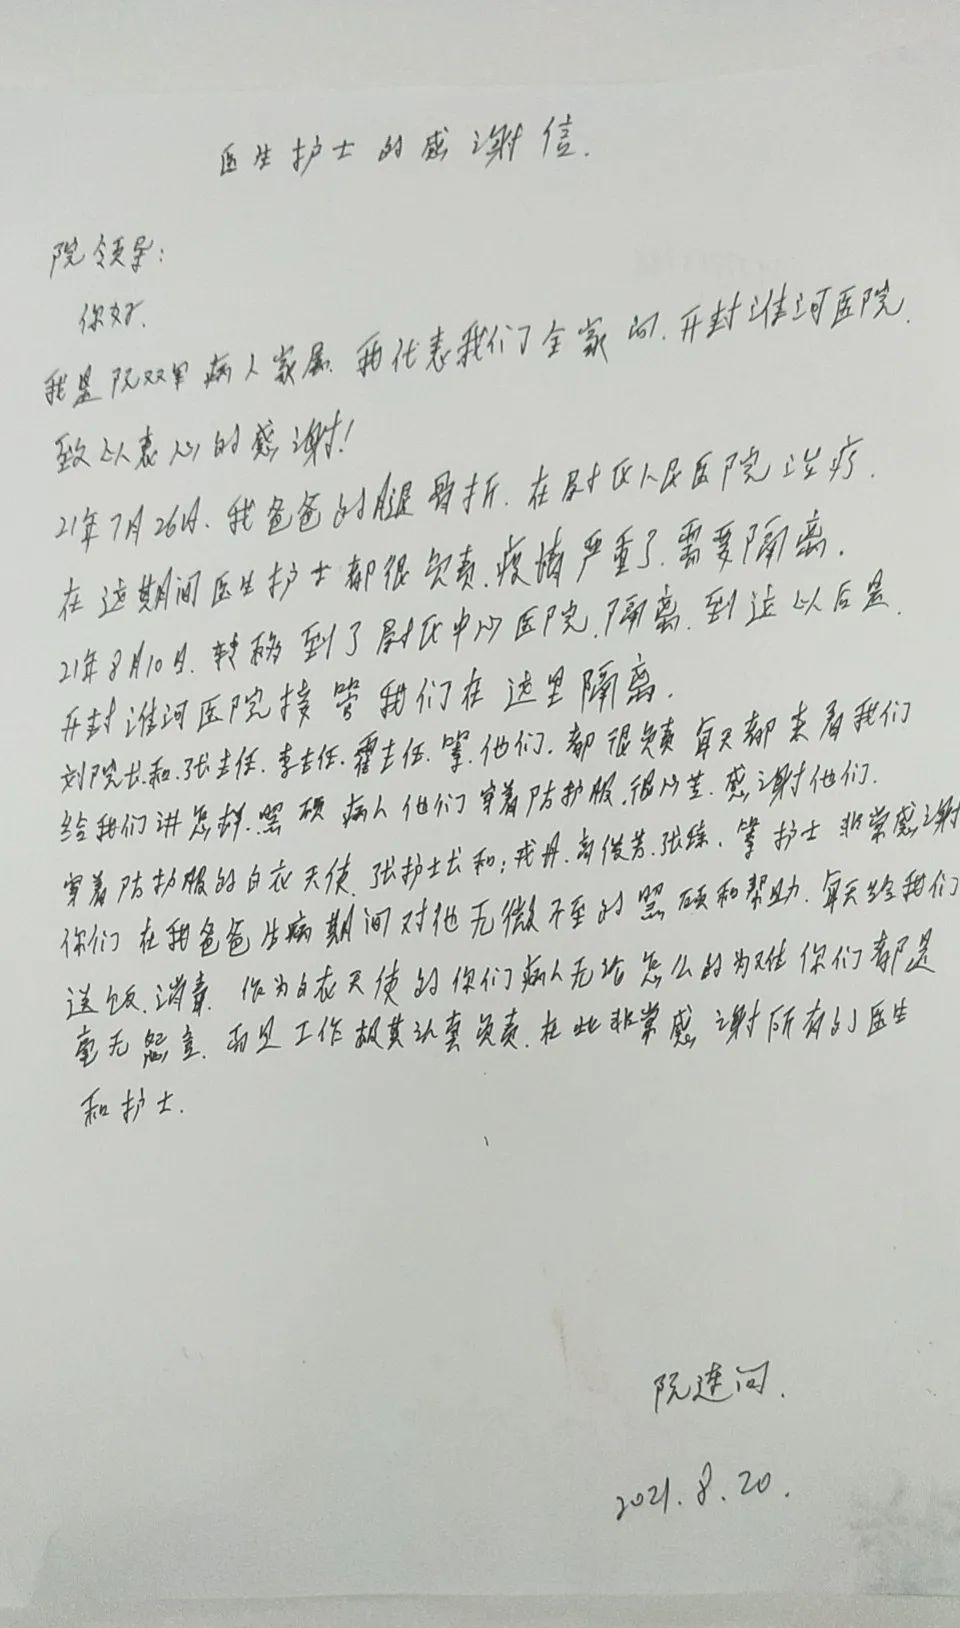 医生护士的感谢信.
院领导:
你好.
我是阮双军病人家属.我代表我们全家向.开封淮河医院.
致以衷心的感谢!
21年7月26日.我爸爸的腿骨折.在尉氏人民医院治疗.
在这期间医生护士都很负责.疫情严重了.需要隔离.
21年8月10日.转移到了尉氏中心医院.隔离.到这以后是.
开封淮河医院接管我们在这里隔离.
刘院长.和.张主任.李主任.霍主任.等.他们.都很负责每天都来看我们
给我们讲怎样.照顾病人他们穿着防护服.很辛苦.感谢他们.
穿着防护服的白衣天使.张护士长和:戎丹.高俊芳.张.等护士非常感谢
你们在我爸爸生病期间对他无微不至的照顾和帮助.每天给我们
送饭.消毒.作为白衣天使的你们病人无论怎么的为难你们都是
毫无怨言.而且工作极其认真负责.在此非常感谢所有的医生
和护士.
阮连问.
2021.8.20.